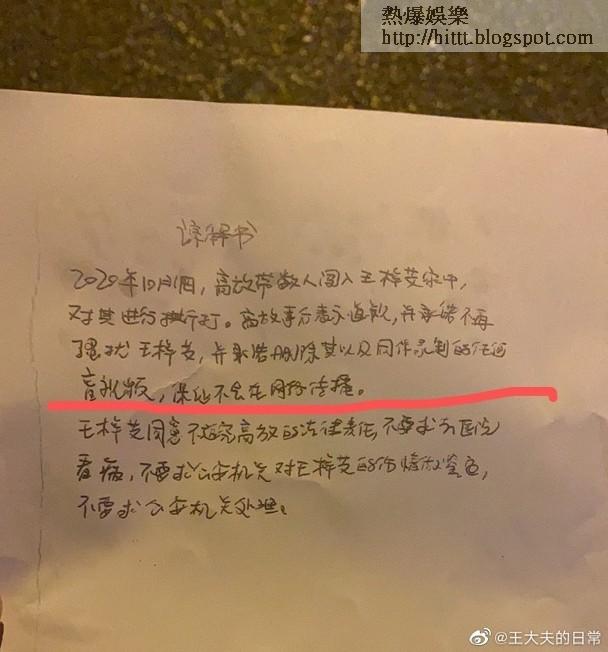 熱爆娛樂
http://hittt.blogspot.com
谅解书
2020年10月1日，高放带数人闯入王梓芠家中，
对其进行殴打。高放事后表示道歉，并承诺不再
骚扰王梓芠，并承诺删除其以及同伴录制的任何
音视频，保证不会在网络传播。
王梓芠同意不追究高放的法律责任，不要求去医院
看病，不要求公安机关对王梓芠的伤情做鉴定，
不要求公安机关处理。
@王大夫的日常